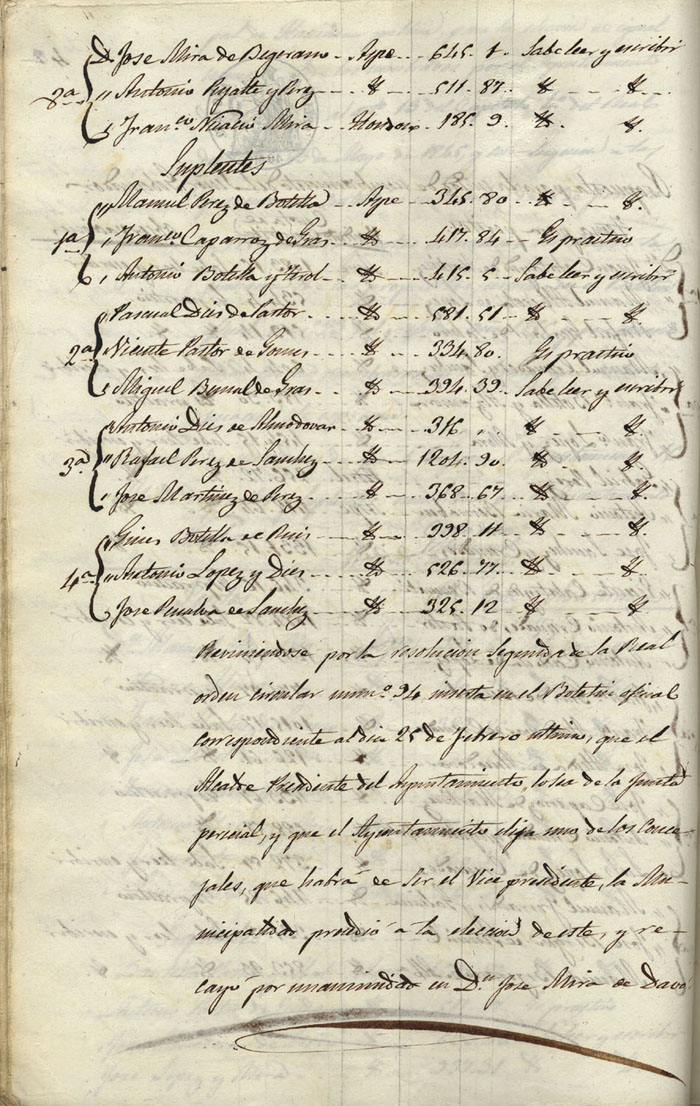 D. Jose Mira de Begerano - Aspe - 645. 1. Sabe leer y escribir
8ª " Antonio Pujalte y Perez - " - 511. 87. " - "
" Franco Mira - Hondon - 185. 9. " "
Suplentes
" Manuel Perez de Botella - Aspe - 345. 80 - " - "
1ª " Franco Caparroz de Gras - " - 417. 84 - Es practico
" Antonio Botella y Terol - " - 415. 5 - Sabe leer y escribir
" Pascual Dies de Pastor - " - 581. 51 - " "
2ª " Vicente Pastor de Gomis - " - 334. 80. Es practico
" Miguel Bernal de Gras - " - 394. 39. Sabe leer y escribir
" Antonio Dies de Almodovar - " - 316 , . " "
3ª " Rafael Perez de Sanchez - " - 1204. 90. " "
" Jose Martinez de Perez - " - 368. 67 - " "
" Gines Botella de Ruis - " - 998. 11 - " "
4ª " Antonio Lopez y Dies - " - 526. 77 - " "
" Jose Penalva de Sanchez - " - 325. 12 " "
Previniendose por la resolucion segunda de la Real
orden circular numº 94 inserta en el Boletin oficial
correspondiente al dia 25 de febrero ultimo, que el
Alcalde Presidente del Ayuntamiento, lo sea de la Junta
pericial, y que el Ayuntamiento elija uno de los Conce-
jales, que habrá de ser el Vice presidente, la Mu-
nicipalidad prosedió á la eleccion de este, y re-
cayó por unanimidad en Dn Jose Mira de Davó